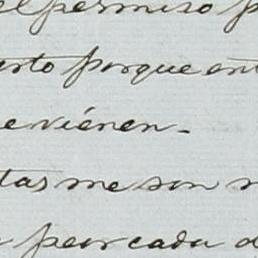 el permiso p
erto porque ent
e viénen_
tas me son n
peor cada d